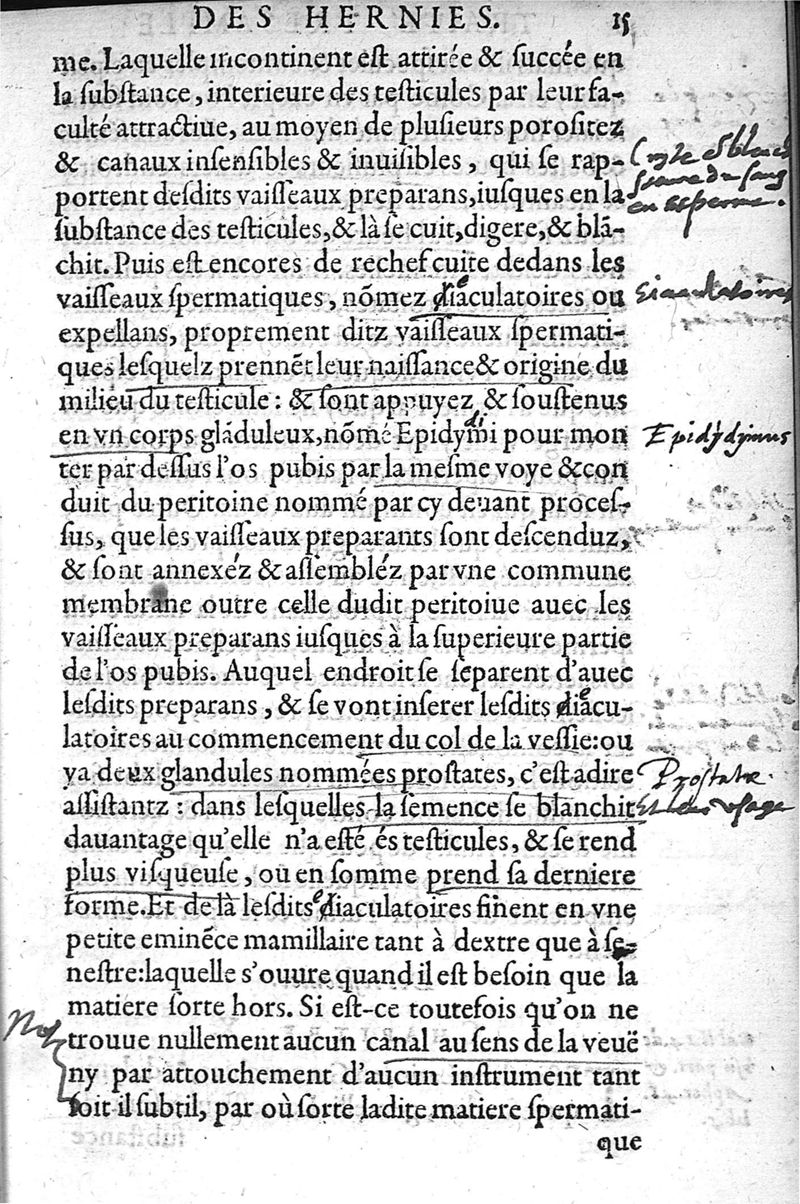 DES HERNIES. 15
me. Laquelle incontinent eſt attirée & ſuccée en
la ſubſtance, interieure des teſticules par leur fa-
culté attractiue, au moyen de pluſieurs poroſitez
& canaux inſenſibles & inuiſibles, qui ſe rap-
portent deſdits vaiſſeaux preparans, iuſques en la
ſubſtance des teſticules, & là ſe cuit, digere, & blā-
chit. Puis eſt encores de rechef cuite dedans les
vaiſſeaux ſpermatiques, nōmez eiaculatoires ou
Eiaculatoires
expellans, proprement ditz vaiſſeaux ſpermati-
ques leſquelz prennēt leur naiſſance & origine du
milieu du teſticule: & ſont appuyez & ſouſtenus
en vn corps glāduleux, nōmé Epidydimi pour mon
Epidydymus
ter par deſſus l'os pubis par la meſme voye & con
duit du peritoine nommé par cy deuant proceſ-
ſus, que les vaiſſeaux preparants ſont deſcenduz,
& ſont annexéz & aſſembléz par vne commune
membrane outre celle dudit peritoiue auec les
vaiſſeaux preparans iuſques à la ſuperieure partie
de l'os pubis. Auquel endroit ſe ſeparent d'auec
leſdits preparans, & ſe vont inſerer leſdits eiacu-
latoires au commencement du col de la veſſie: ou
ya deux glandules nommées proſtates, c'eſt adire
Prostatae.
aſſiſtantz: dans leſquelles la ſemence ſe blanchit
Et leur usage
dauantage qu'elle n'a eſté és teſticules, & ſe rend
plus viſqueuſe, ou en ſomme prend ſa derniere
forme. Et de là leſdits eiaculatoires finent en vne
petite eminēce mamillaire tant à dextre que à ſe-
neſtre: laquelle s'ouure quand il eſt beſoin que la
matiere ſorte hors. Si eſt-ce toutefois qu'on ne
Not
trouue nullement aucun canal au ſens de la veuë
ny par attouchement d'aucun inſtrument tant
ſoit il ſubtil, par où ſorte ladite matiere ſpermati-
que